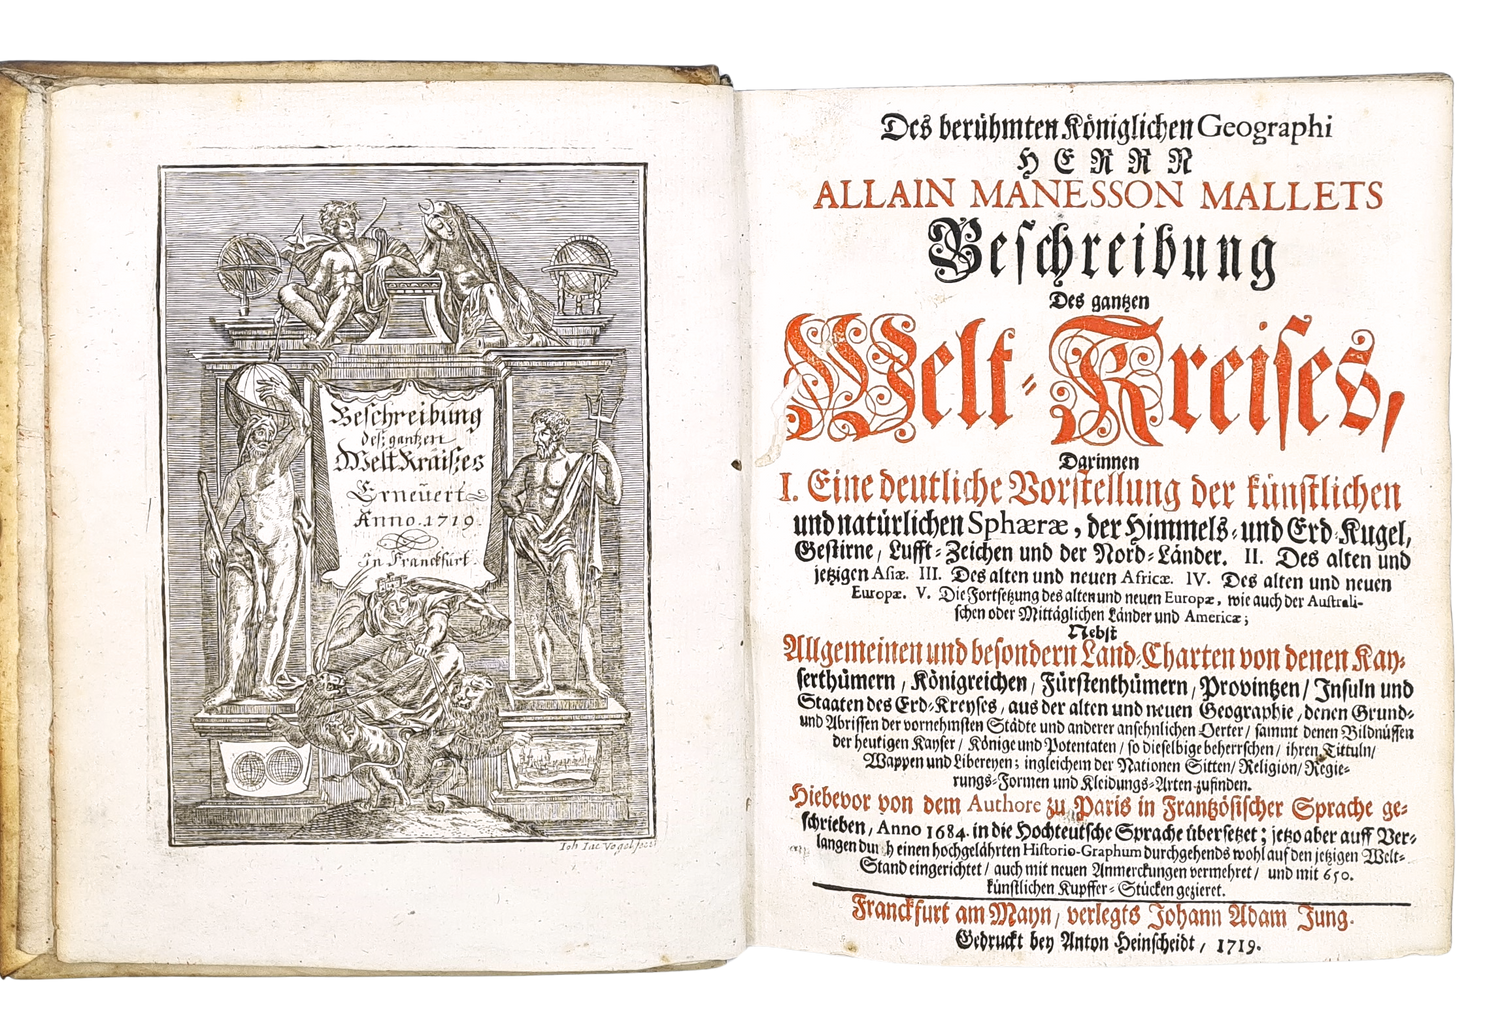 Beschreibung
des gantzen
Welt Kraißes
Erneüert
Anno. 1719.
In Franckfurt.
Ioh Iac Vogel
Des berühmten Königlichen Geographi
HERRN
ALLAIN MANESSON MALLETS
Beschreibung
Des gantzen
Welt-Kreises,
Darinnen
I. Eine deutliche Vorstellung der künstlichen
und natürlichen Sphæræ, der Himmels- und Erd-Kugel,
Gestirne, Lufft-Zeichen und der Nord-Länder. II. Des alten und
jetzigen Asiæ. III. Des alten und neuen Africæ. IV. Des alten und neuen
Europæ. V. Die Fortsetzung des alten und neuen Europæ, wie auch der Australi-
schen oder Mittäglichen Länder und Americæ;
Nebst
Allgemeinen und besondern Land-Charten von denen Kay-
serthümern, Königreichen, Fürstenthümern, Provintzen/ Insuln und
Staaten des Erd-Kreyses, aus der alten und neuen Geographie, denen Grund-
und Abrissen der vornehmsten Städte und anderer ansehnlichen Oerter/ sammt denen Bildnüssen
der heutigen Kayser/ Könige und Potentaten/ so dieselbige beherrschen/ ihren Tittuln/
Wappen und Libereyen; ingleichem der Nationen Sitten/ Religion/ Regie-
rungs-Formen und Kleidungs-Arten zufinden.
Hiebevor von dem Authore zu Paris in Frantzösischer Sprache ge-
schrieben, Anno 1684. in die Hochteutsche Sprache übersetzet; jetzo aber auff Ver-
langen durch einen hochgelährten Historio-Graphum durchgehends wohl auf den jetzigen Welt-
Stand eingerichtet/ auch mit neuen Anmerckungen vermehret/ und mit 650.
künstlichen Kupffer-Stücken gezieret.
Franckfurt am Mayn, verlegts Johann Adam Jung.
Gedruckt bey Anton Heinscheidt, 1719.